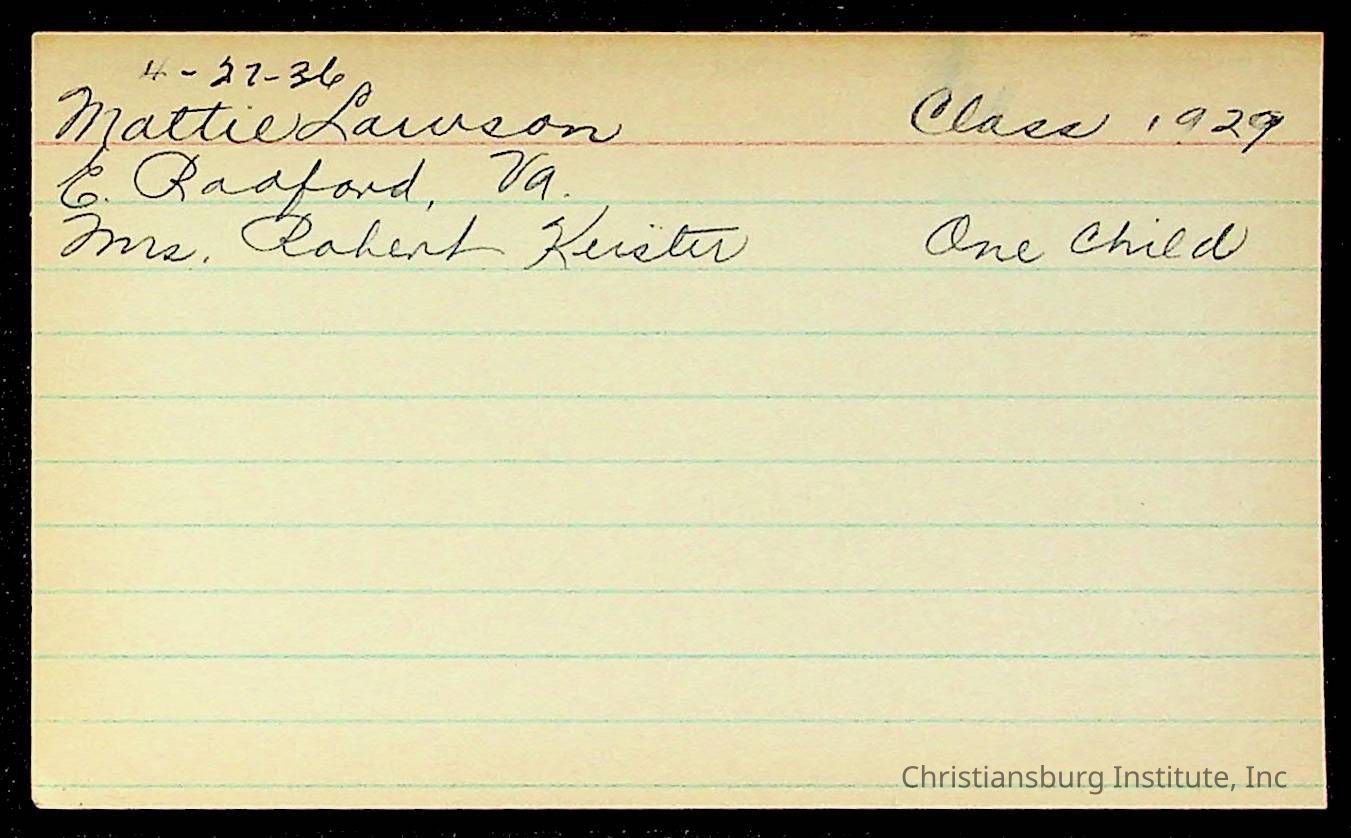 4-27-36
Mattie Lawson Class 1929
E. Radford, Va.
Mrs. Robert Keister One Child
Christiansburg Institute, Inc